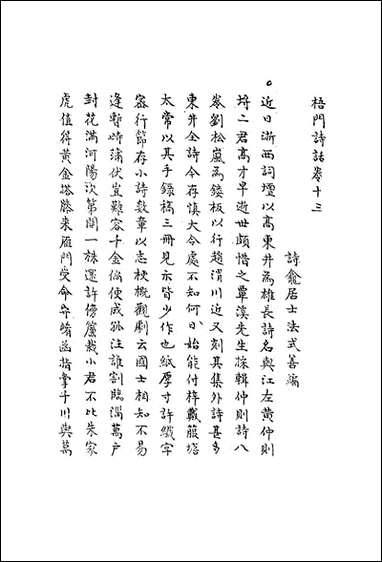 梧門詩話卷十三
詩龕居士法式善編
近日浙西詞壇以高東井為雄長詩名與江左黃仲則
埒二君高才早逝世頗惜之覃溪先生採輯仲則詩八
峯劉松嵐為鋟板以行趙渭川近又刻其集外詩甚多
東井全詩今存慎大令處不知何日始能付梓戴簏塘
太常以其手錄稿三冊見示皆少作也紙厚寸許纖字
密行節存小詩數章以志梗概觀劇云國士相知不易
逢暫時蒲伏豈難容千金倘便成孤注誰割臨淄萬戶
封花滿河陽次第開一株還許傍簷栽小君不比朱家
虎值得黃金搭膝來雁門受命守崤函指掌千川與萬